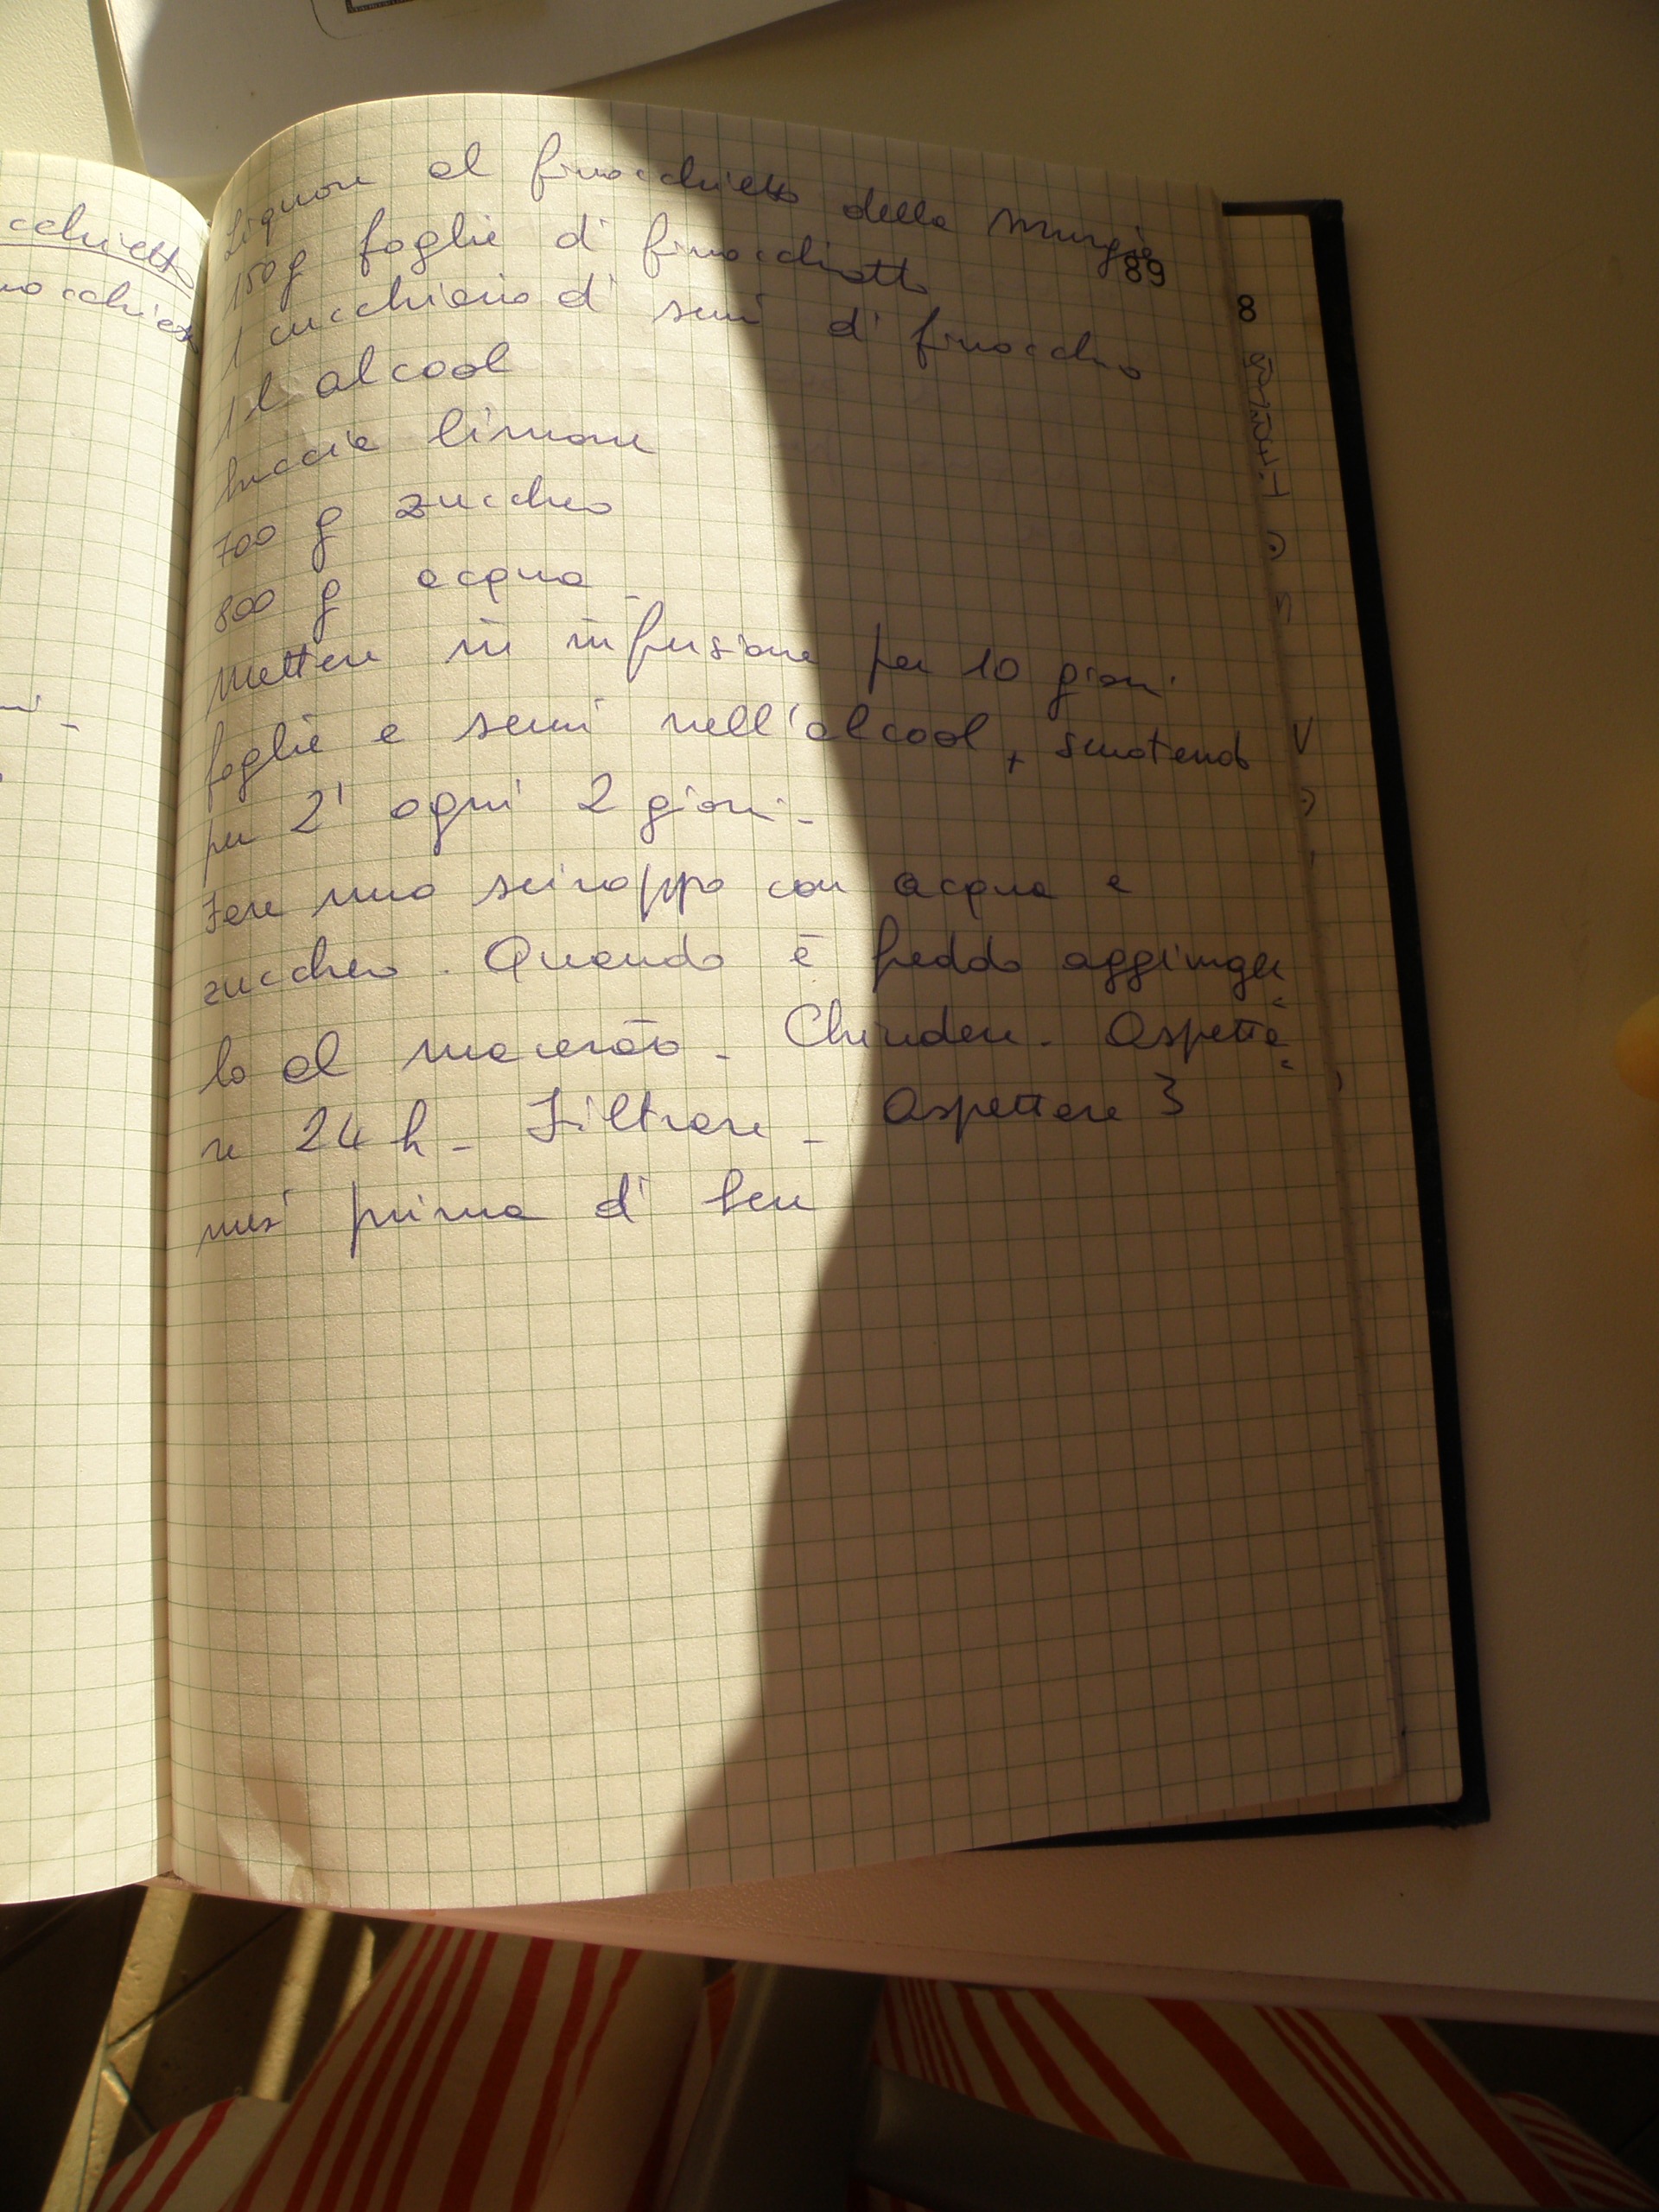 cchietto
nocchietto
Liquore al finocchietto della Murgia
89
150g foglie di finocchietto
1 cucchiaio di semi di finocchio
1 l alcool
buccia limone
700 g zucchero
800 g acqua -
Mettere in infusione per 10 giorni
foglie e semi nell'alcool, scuotendo
per 2' ogni 2 giorni -
Fare uno sciroppo con acqua e
zucchero. Quando è freddo aggiunger
lo al macerato - Chiudere - Aspetta=
re 24 h - Filtrare - Aspettare 3
mesi prima di bere
8